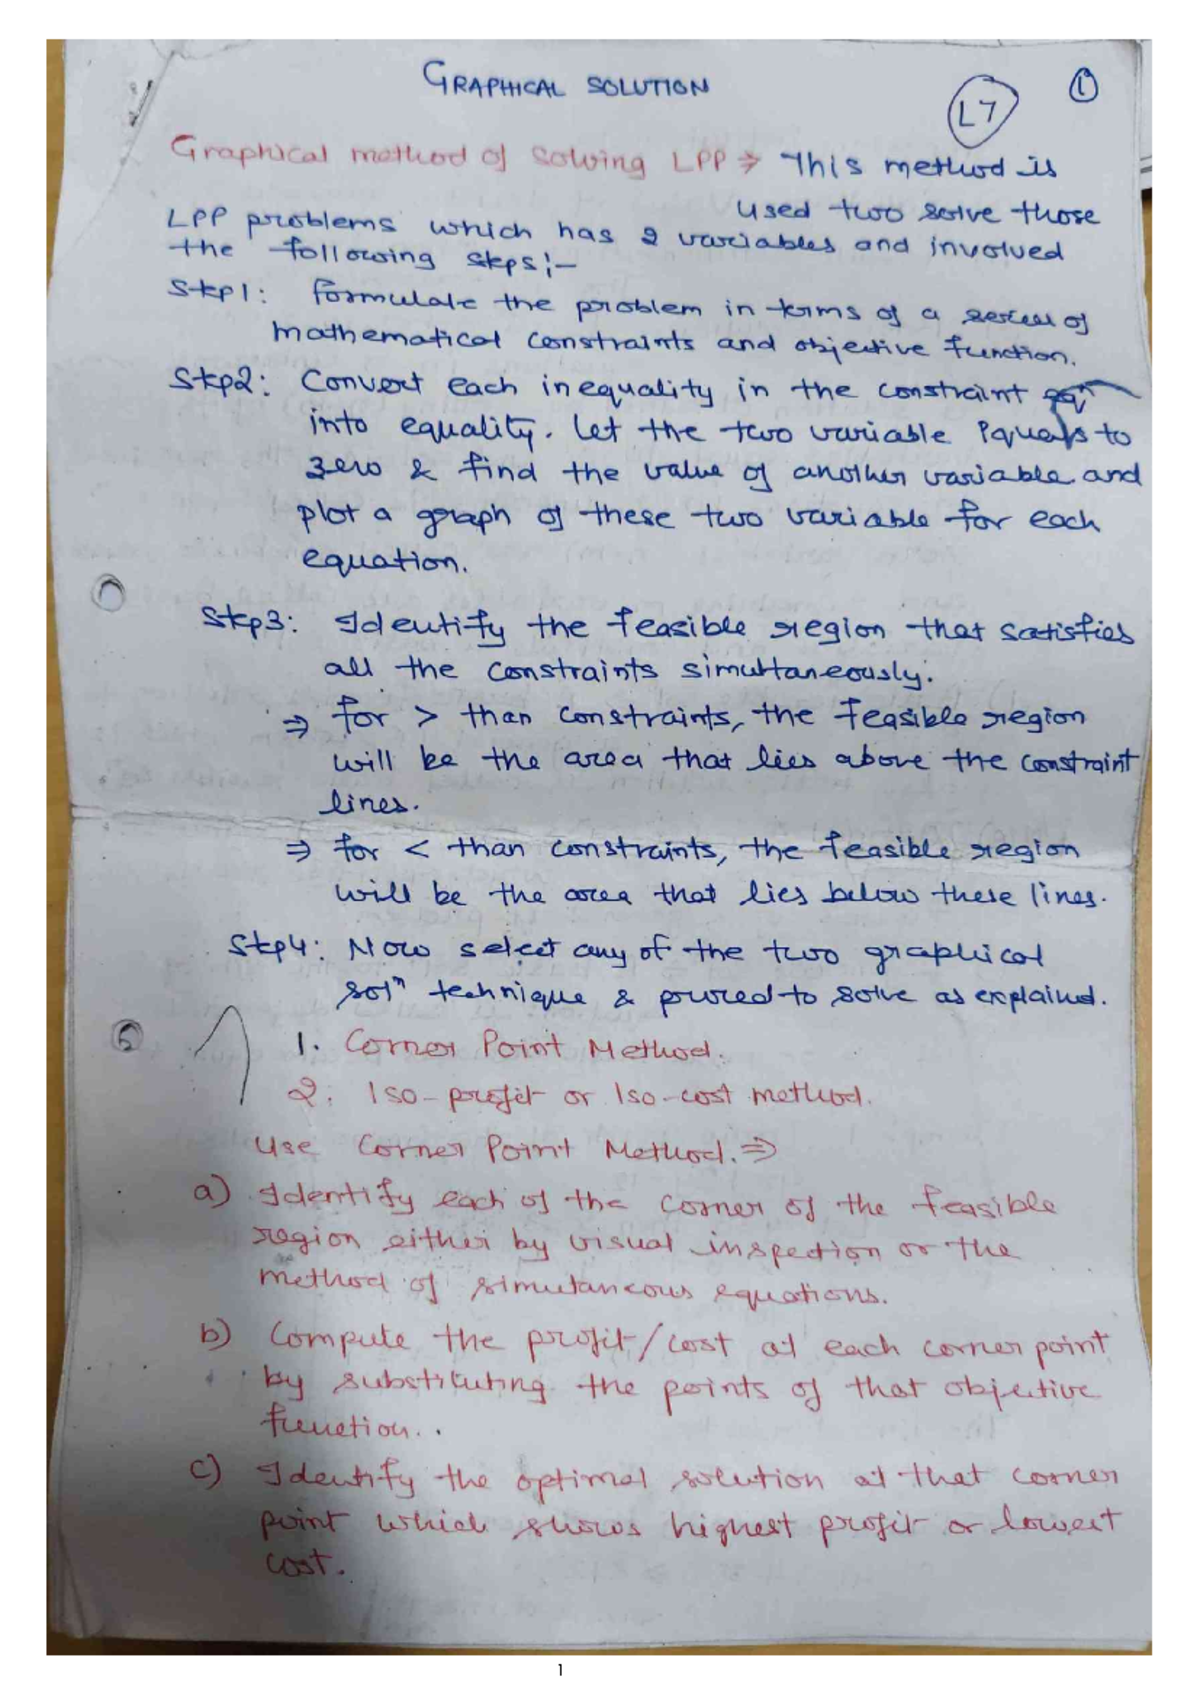 GRAPHICAL SOLUTION
L7
1
Graphical method of solving LPP ⇒ This method is
used two solve those
LPP problems which has 2 variables and involved
the following steps:-
Step1: Formulate the problem in terms of a series of
mathematical constraints and objective function.
Step2: Convert each inequality in the constraint eqⁿ
into equality. Let the two variable equals to
zero & find the value of another variable and
plot a graph of these two variable for each
equation.
Step3: Identify the feasible region that satisfies
all the constraints simultaneously.
⇒ for > than constraints, the feasible region
will be the area that lies above the constraint
lines.
⇒ for < than constraints, the feasible region
will be the area that lies below these lines.
Step4: Now select any of the two graphical
solⁿ technique & proceed to solve as explained.
1. Corner Point Method.
2. Iso-profit or Iso-cost method.
Use Corner Point Method. ⇒
a) Identify each of the corner of the feasible
region either by visual inspection or the
method of simultaneous equations.
b) Compute the profit/cost at each corner point
by substituting the points of that objective
function..
c) Identify the optimal solution at that corner
point which shows highest profit or lowest
cost.
1